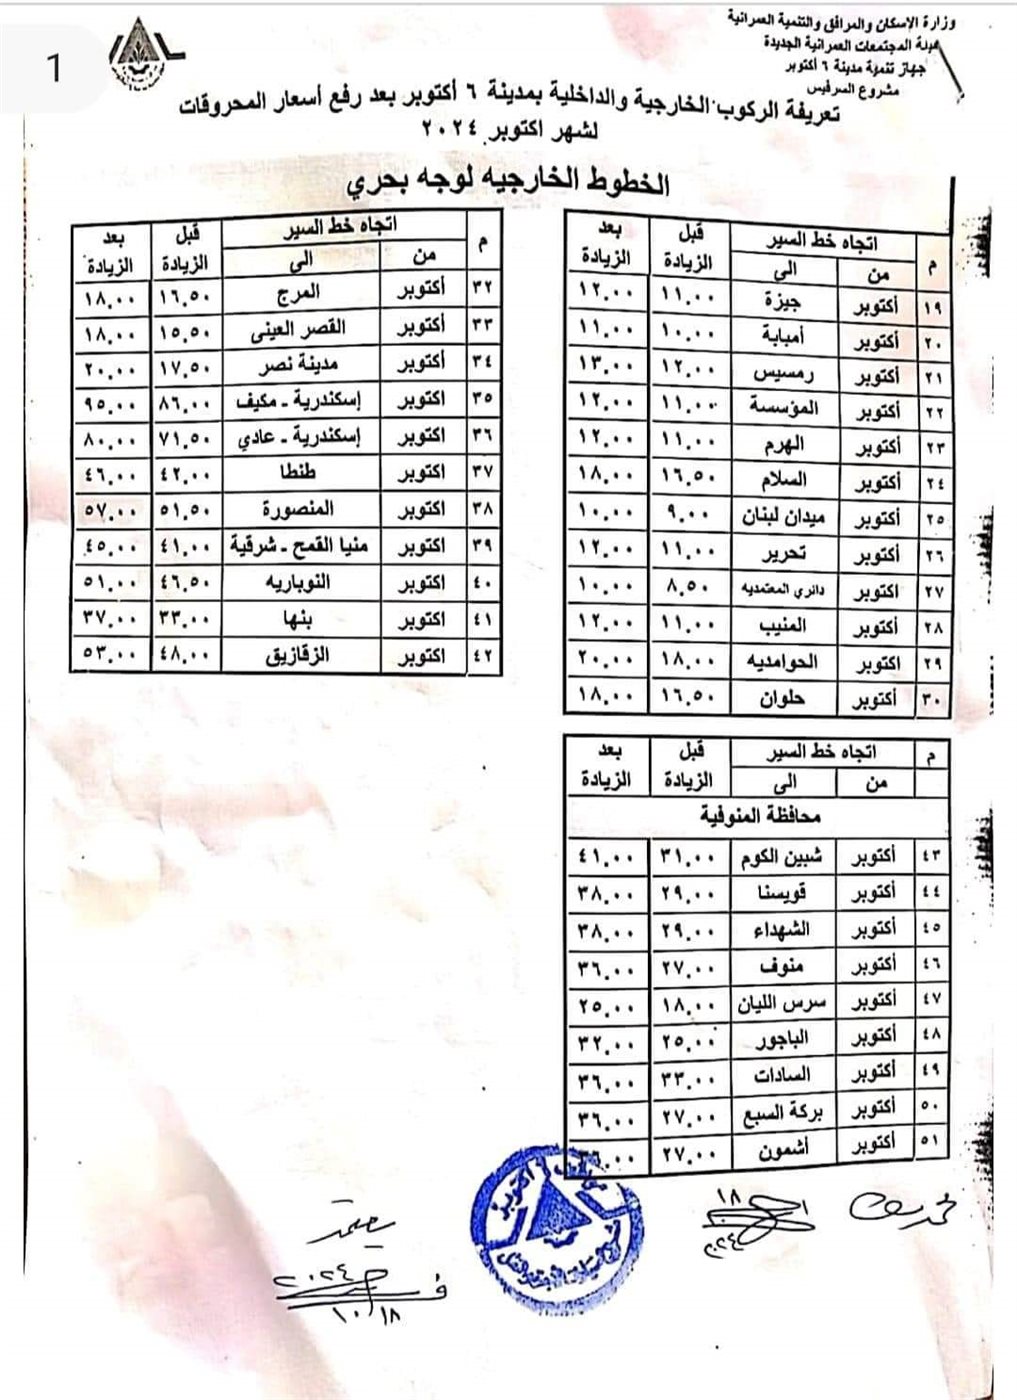 1
وزارة الإسكان والمرافق والتنمية العمرانية
هيئة المجتمعات العمرانية الجديدة
جهاز تنمية مدينة ٦ أكتوبر
مشروع السرفيس
تعريفة الركوب الخارجية والداخلية بمدينة ٦ أكتوبر بعد رفع أسعار المحروقات
لشهر اكتوبر ٢٠٢٤
الخطوط الخارجيه لوجه بحري
م اتجاه خط السير قبل الزيادة بعد الزيادة
من الى
١٩ أكتوبر جيزة ١١.٠٠ ١٢.٠٠
٢٠ أكتوبر أمبابة ١٠.٠٠ ١١.٠٠
٢١ أكتوبر رمسيس ١٢.٠٠ ١٣.٠٠
٢٢ أكتوبر المؤسسة ١١.٠٠ ١٢.٠٠
٢٣ أكتوبر الهرم ١١.٠٠ ١٢.٠٠
٢٤ أكتوبر السلام ١٦.٥٠ ١٨.٠٠
٢٥ أكتوبر ميدان لبنان ٩.٠٠ ١٠.٠٠
٢٦ أكتوبر تحرير ١١.٠٠ ١٢.٠٠
٢٧ اكتوبر دائري المعتمديه ٨.٥٠ ١٠.٠٠
٢٨ أكتوبر المنيب ١١.٠٠ ١٢.٠٠
٢٩ اكتوبر الحوامديه ١٨.٠٠ ٢٠.٠٠
٣٠ أكتوبر حلوان ١٦.٥٠ ١٨.٠٠
م اتجاه خط السير قبل الزيادة بعد الزيادة
من الى
٣٢ أكتوبر المرج ١٦.٥٠ ١٨.٠٠
٣٣ أكتوبر القصر العينى ١٥.٥٠ ١٨.٠٠
٣٤ أكتوبر مدينة نصر ١٧.٥٠ ٢٠.٠٠
٣٥ اكتوبر إسكندرية - مكيف ٨٦.٠٠ ٩٥.٠٠
٣٦ اكتوبر إسكندرية - عادي ٧١.٥٠ ٨٠.٠٠
٣٧ اكتوبر طنطا ٤٢.٠٠ ٤٦.٠٠
٣٨ اكتوبر المنصورة ٥١.٥٠ ٥٧.٠٠
٣٩ اكتوبر منيا القمح - شرقية ٤١.٠٠ ٤٥.٠٠
٤٠ اكتوبر النوباريه ٤٦.٥٠ ٥١.٠٠
٤١ اكتوبر بنها ٣٣.٠٠ ٣٧.٠٠
٤٢ اكتوبر الزقازيق ٤٨.٠٠ ٥٣.٠٠
م اتجاه خط السير قبل الزيادة بعد الزيادة
من الى
محافظة المنوفية
٤٣ أكتوبر شبين الكوم ٣١.٠٠ ٤١.٠٠
٤٤ أكتوبر قويسنا ٢٩.٠٠ ٣٨.٠٠
٤٥ أكتوبر الشهداء ٢٩.٠٠ ٣٨.٠٠
٤٦ أكتوبر منوف ٢٧.٠٠ ٣٦.٠٠
٤٧ أكتوبر سرس الليان ١٨.٠٠ ٢٥.٠٠
٤٨ أكتوبر الباجور ٢٥.٠٠ ٣٢.٠٠
٤٩ أكتوبر السادات ٣٣.٠٠ ٣٦.٠٠
٥٠ أكتوبر بركة السبع ٢٧.٠٠ ٣٦.٠٠
٥١ أكتوبر أشمون ٢٧.٠٠ ٣٦.٠٠
١٨
٢٠٢٤
٢٠٢٤
١٠/١٨